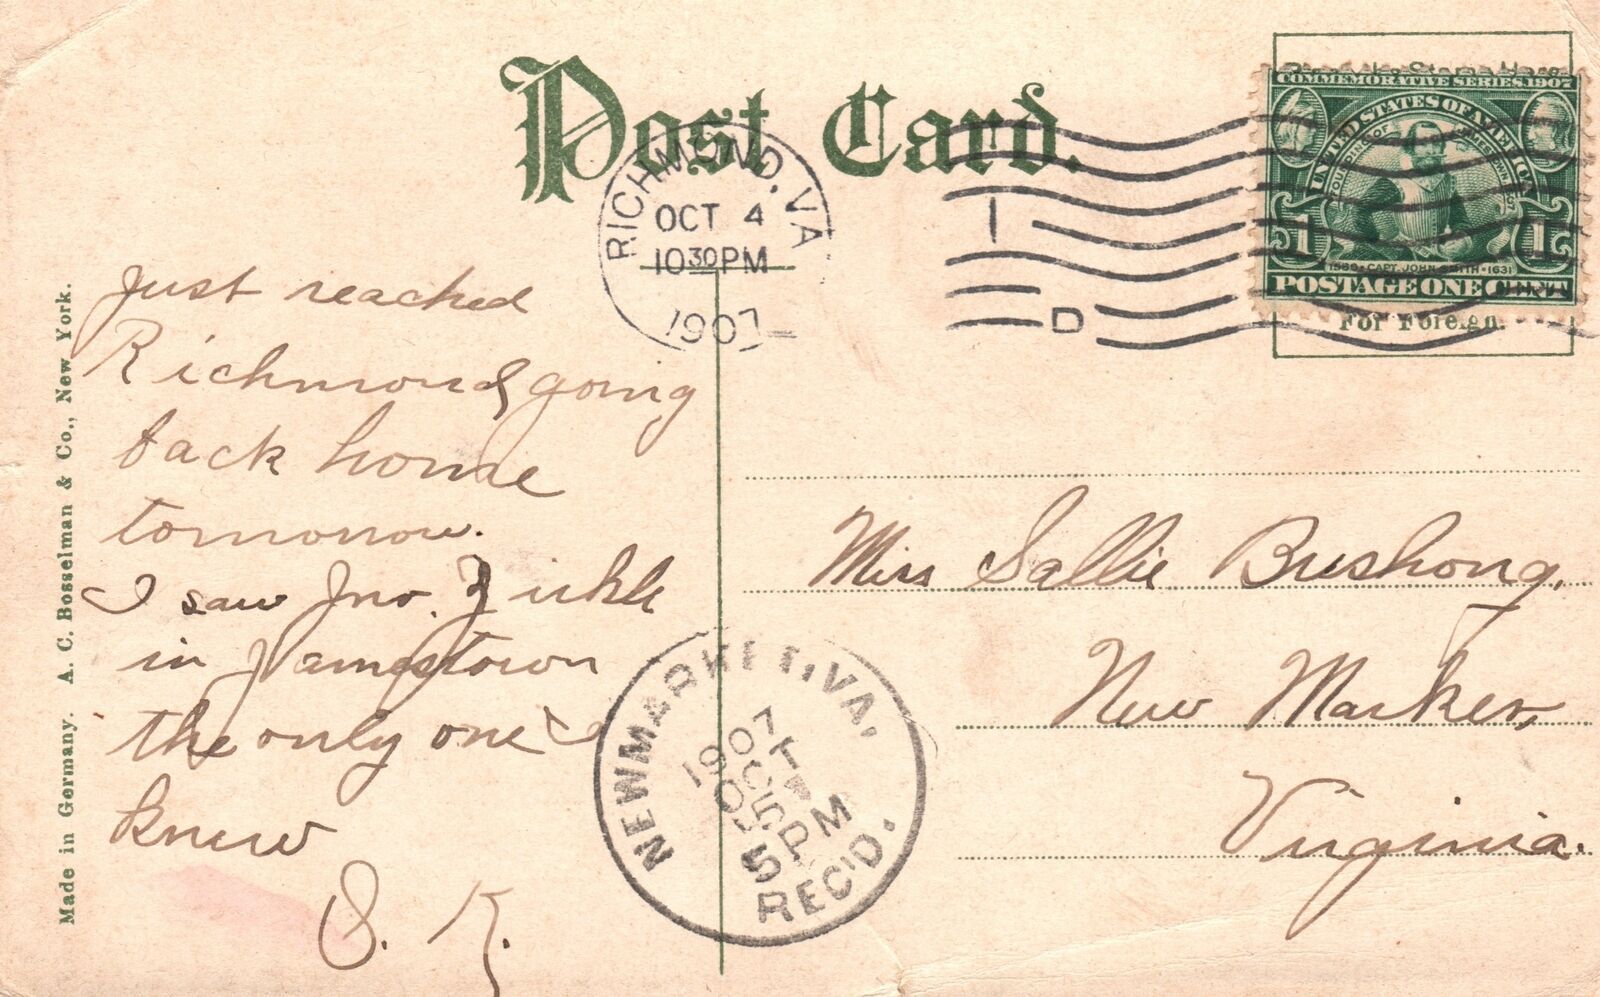 Post Card.
RICHMOND, VA
OCT 4
10 30 PM
1907
1
D
COMMEMORATIVE SERIES 1907
UNITED STATES OF AMERICA
FOUNDING OF JAMESTOWN 1607
1 1
1580 · CAPT. JOHN SMITH · 1631
POSTAGE ONE CENT
For Foreign.
Made in Germany. A. C. Bosselman & Co., New York.
Just reached
Richmond, going
back home
tomorrow.
I saw Jno. Zirkle
in Jamestown
the only one I
knew
S. K.
Miss Sallie Bushong,
New Market,
Virginia.
NEWMARKET, VA,
1907
OCT
5
5 PM
REC'D.